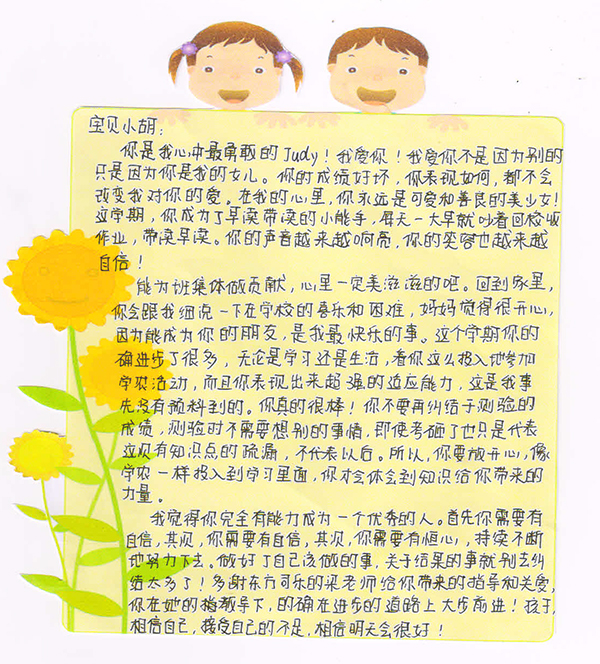 宝贝小胡：
你是我心中最勇敢的Judy！我爱你！我爱你不是因为别的
只是因为你是我的女儿。你的成绩好坏，你表现如何，都不会
改变我对你的爱。在我的心里，你永远是可爱和善良的美少女！
这学期，你成为了早读带读的小能手，每天一大早就吵着回校收
作业，带读早读。你的声音越来越响亮，你的笑容也越来越
自信！
能为班集体做贡献，心里一定美滋滋的吧。回到家里，
你会跟我细说一下在学校的喜乐和困难，妈妈觉得很开心，
因为能成为你的朋友，是我最快乐的事。这个学期你的
确进步了很多，无论是学习还是生活，看你这么投入地参加
学农活动，而且你表现出来超强的适应能力，这是我事
先没有预料到的。你真的很棒！你不要再纠结于测验的
成绩，测验时不需要想别的事情，即使考砸了也只是代表
这次有知识点的疏漏，不代表以后。所以，你要放开心，像
学农一样投入到学习里面，你才会体会到知识给你带来的
力量。
我觉得你完全有能力成为一个优秀的人。首先你需要有
自信，其次，你需要有自信，其次，你需要有恒心，持续不断
地努力下去。做好了自己该做的事，关于结果的事就别去纠
结太多了！多谢东方可乐的梁老师给你带来的指导和关爱，
你在她的指教导下，的确在进步的道路上大步前进！孩子，
相信自己，接受自己的不足，相信明天会很好！